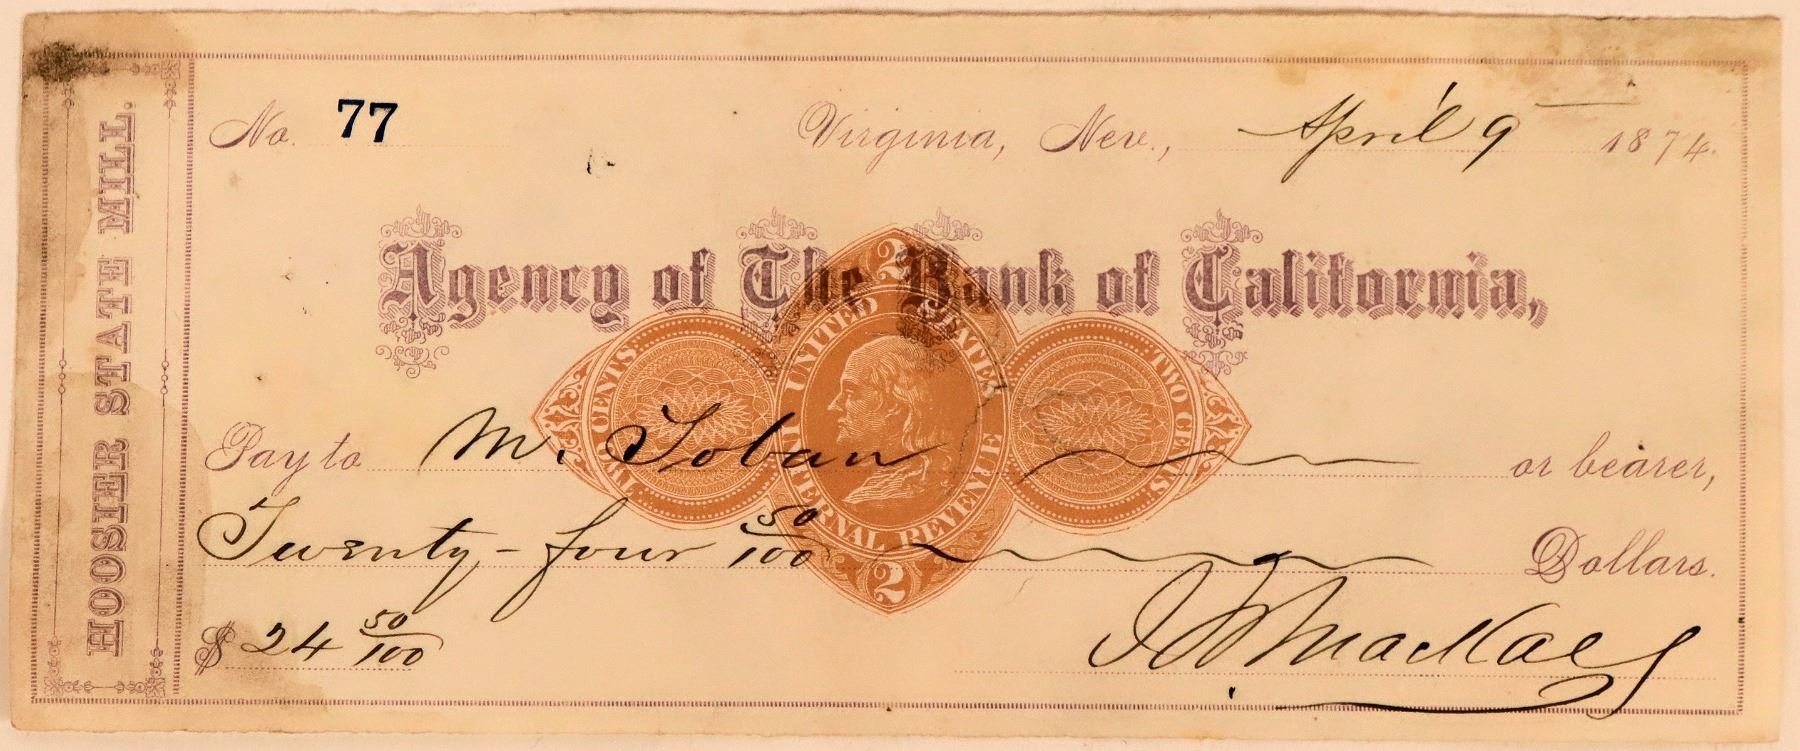 HOOSIER STATE MILL.
No. 77
Virginia, Nev., April 9 1874.
Agency of The Bank of California,
2
UNITED STATES
INTERNAL REVENUE
TWO CENTS
2
Pay to M. Toban or bearer,
Twenty-four 50/100 Dollars.
$ 24 50/100